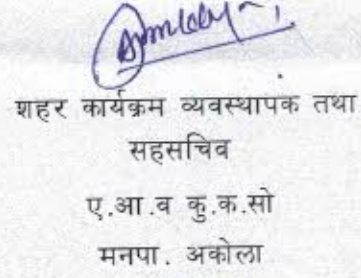 शहर कार्यक्रम व्यवस्थापक तथा
सहसचिव
ए.आ.व कु.क.सो
मनपा. अकोला